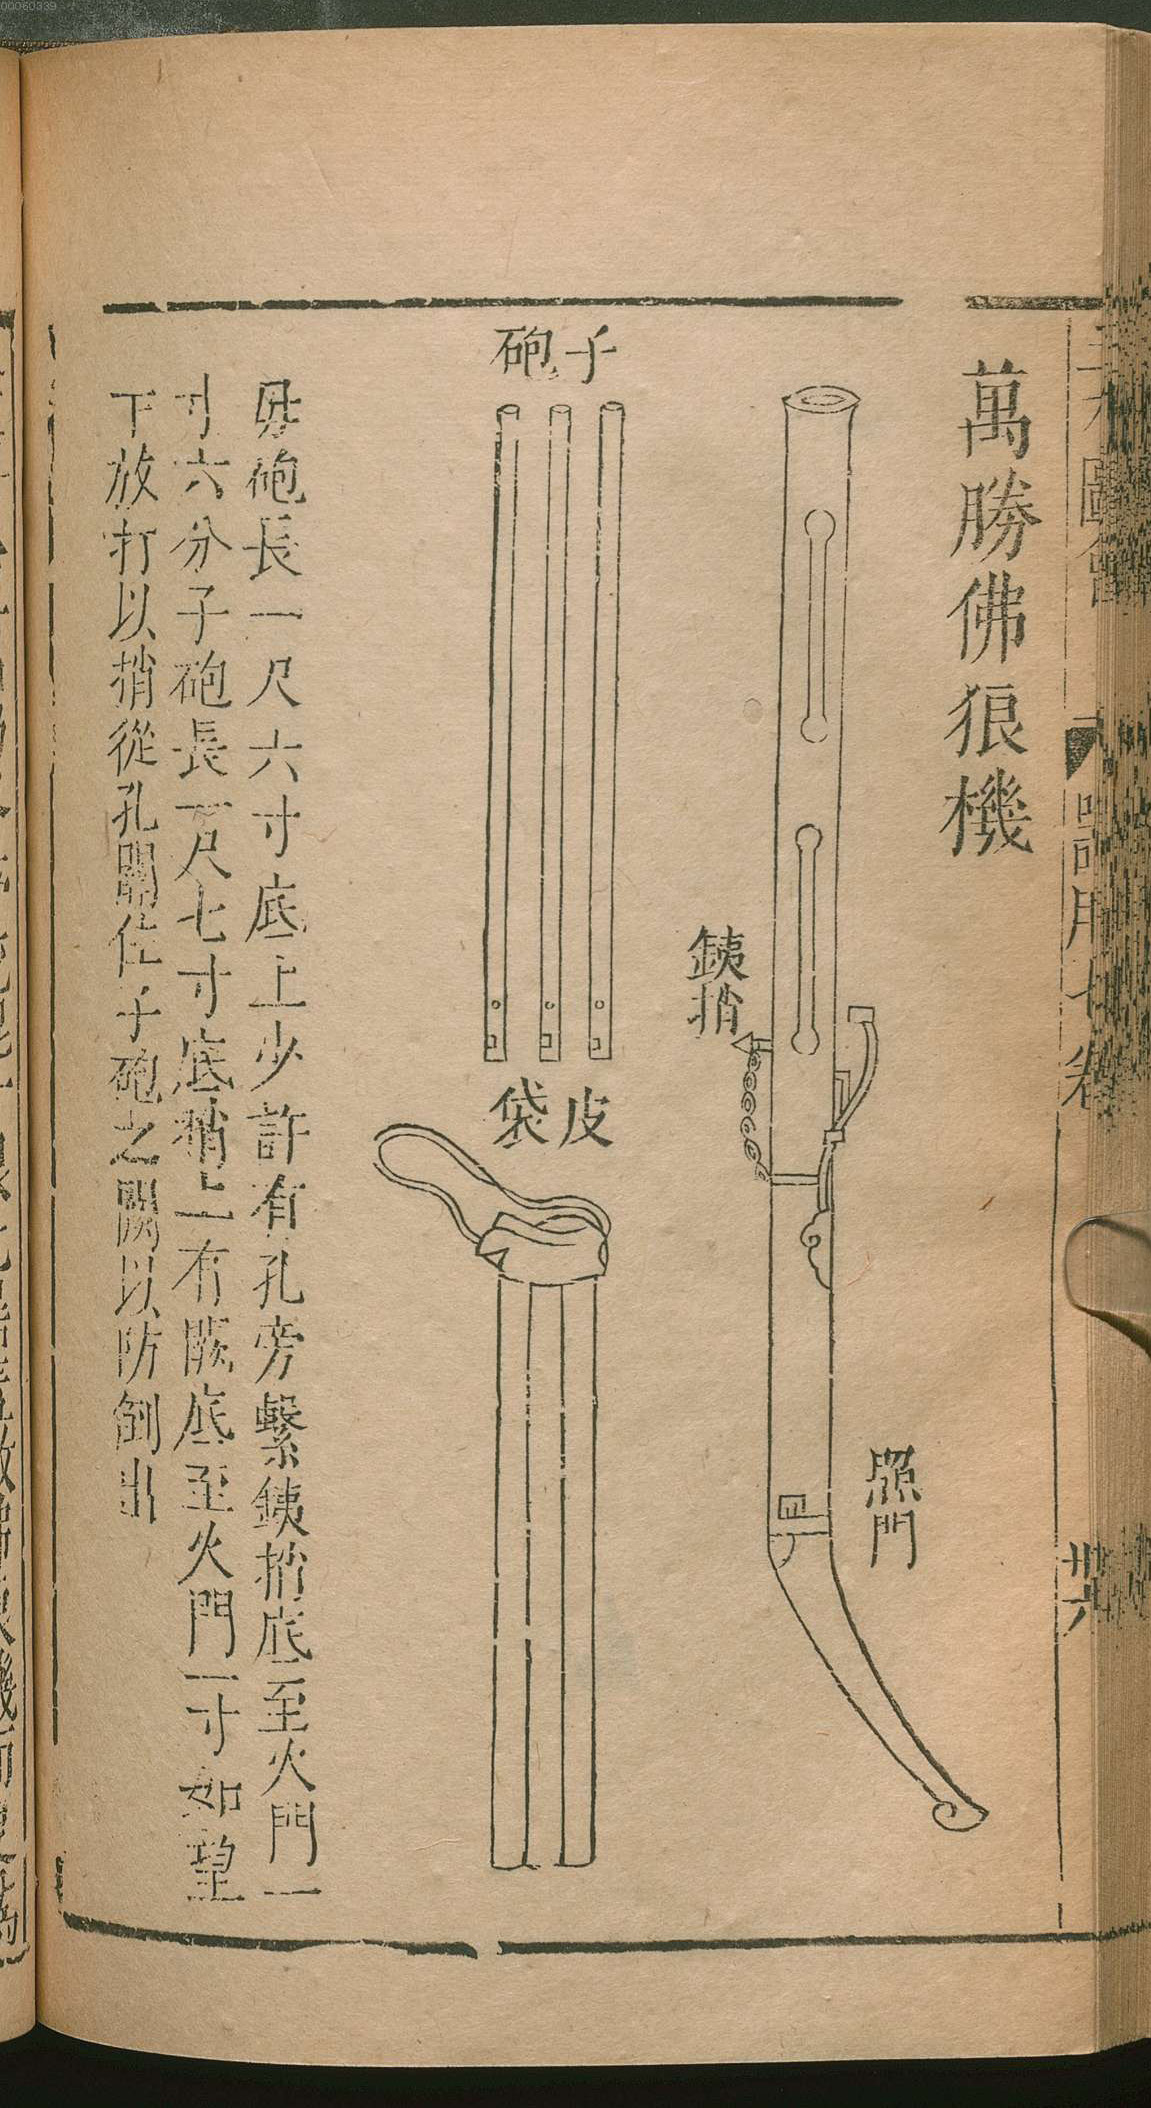 萬勝佛狼機
照門
銕捎
子砲
皮袋
毋砲長一尺六寸底上少許有孔旁繫銕捎底至火門一
寸六分子砲長一尺七寸底稍上有陂底至火門一寸如望
下放打以捎從孔關住子砲之闕以防倒出
器用七卷
卅六
00060339